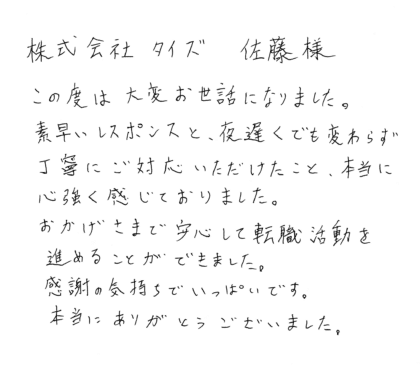 株式会社 タイズ 佐藤様
この度は大変お世話になりました。
素早いレスポンスと、夜遅くでも変わらず
丁寧にご対応いただけたこと、本当に
心強く感じておりました。
おかげさまで安心して転職活動を
進めることができました。
感謝の気持ちでいっぱいです。
本当にありがとうございました。